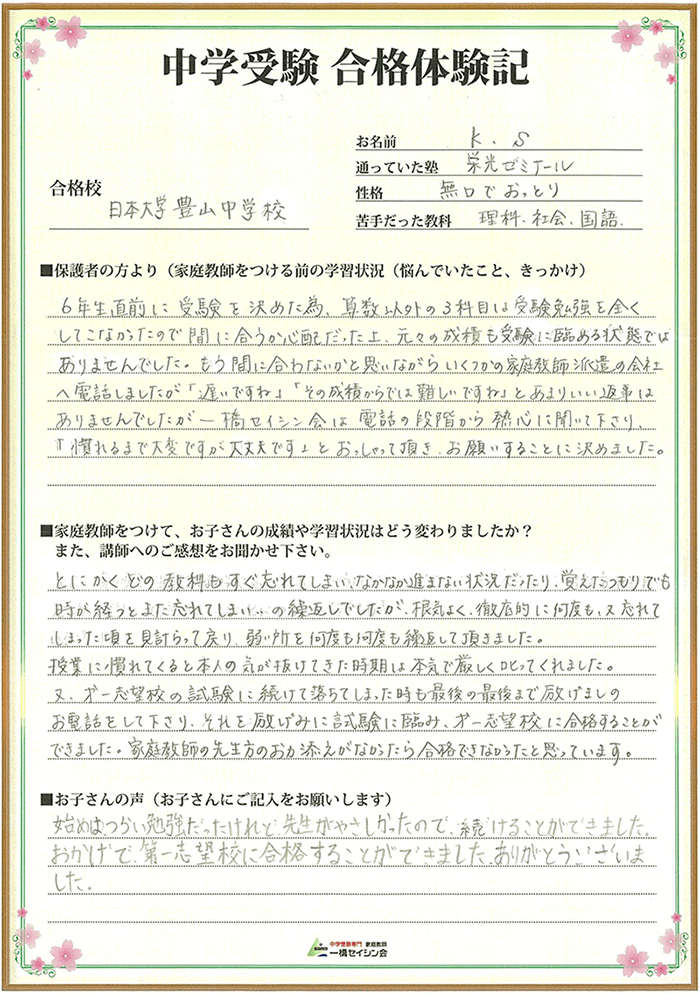 中学受験 合格体験記
お名前 K.S
通っていた塾 栄光ゼミナール
合格校 日本大学豊山中学校
性格 無口でおっとり
苦手だった教科 理科、社会、国語.
■保護者の方より（家庭教師をつける前の学習状況（悩んでいたこと、きっかけ）
6年生直前に受験を決めた為、算数以外の3科目は受験勉強を全く
してこなかったので間に合うか心配だった上、元々の成績も受験に臨める状態では
ありませんでした。もう間に合わないかと思いながらいくつかの家庭教師派遣の会社
へ電話しましたが「遅いですね」「その成績からでは難しいですね」とあまりいい返事は
ありませんでしたが一橋セイシン会は電話の段階から熱心に聞いて下さり、
「慣れるまで大変ですが大丈夫です」とおっしゃって頂き、お願いすることに決めました。
■家庭教師をつけて、お子さんの成績や学習状況はどう変わりましたか？
また、講師へのご感想をお聞かせ下さい。
とにかくどの教科もすぐ忘れてしまい、なかなか進まない状況だったり、覚えたつもりでも
時が経つとまた忘れてしまい…の繰返しでしたが、根気よく、徹底的に何度も、又忘れて
しまった頃を見計らって戻り、弱い所を何度も何度も繰返して頂きました。
授業に慣れてくると本人の気が抜けてきた時期は本気で厳しく叱ってくれました。
又、才一志望校の試験に続けて落ちてしまった時も最後の最後まで励げましの
お電話をして下さり、それを励げみに試験に臨み、才一志望校に合格することが
できました。家庭教師の先生方のお力添えがなかったら合格できなかったと思っています。
■お子さんの声（お子さんにご記入をお願いします）
始めはつらい勉強だったけれど先生がやさしかったので、続けることができました。
おかげで、第一志望校に合格することができました。ありがとうございま
した.
中学受験専門 家庭教師
一橋セイシン会